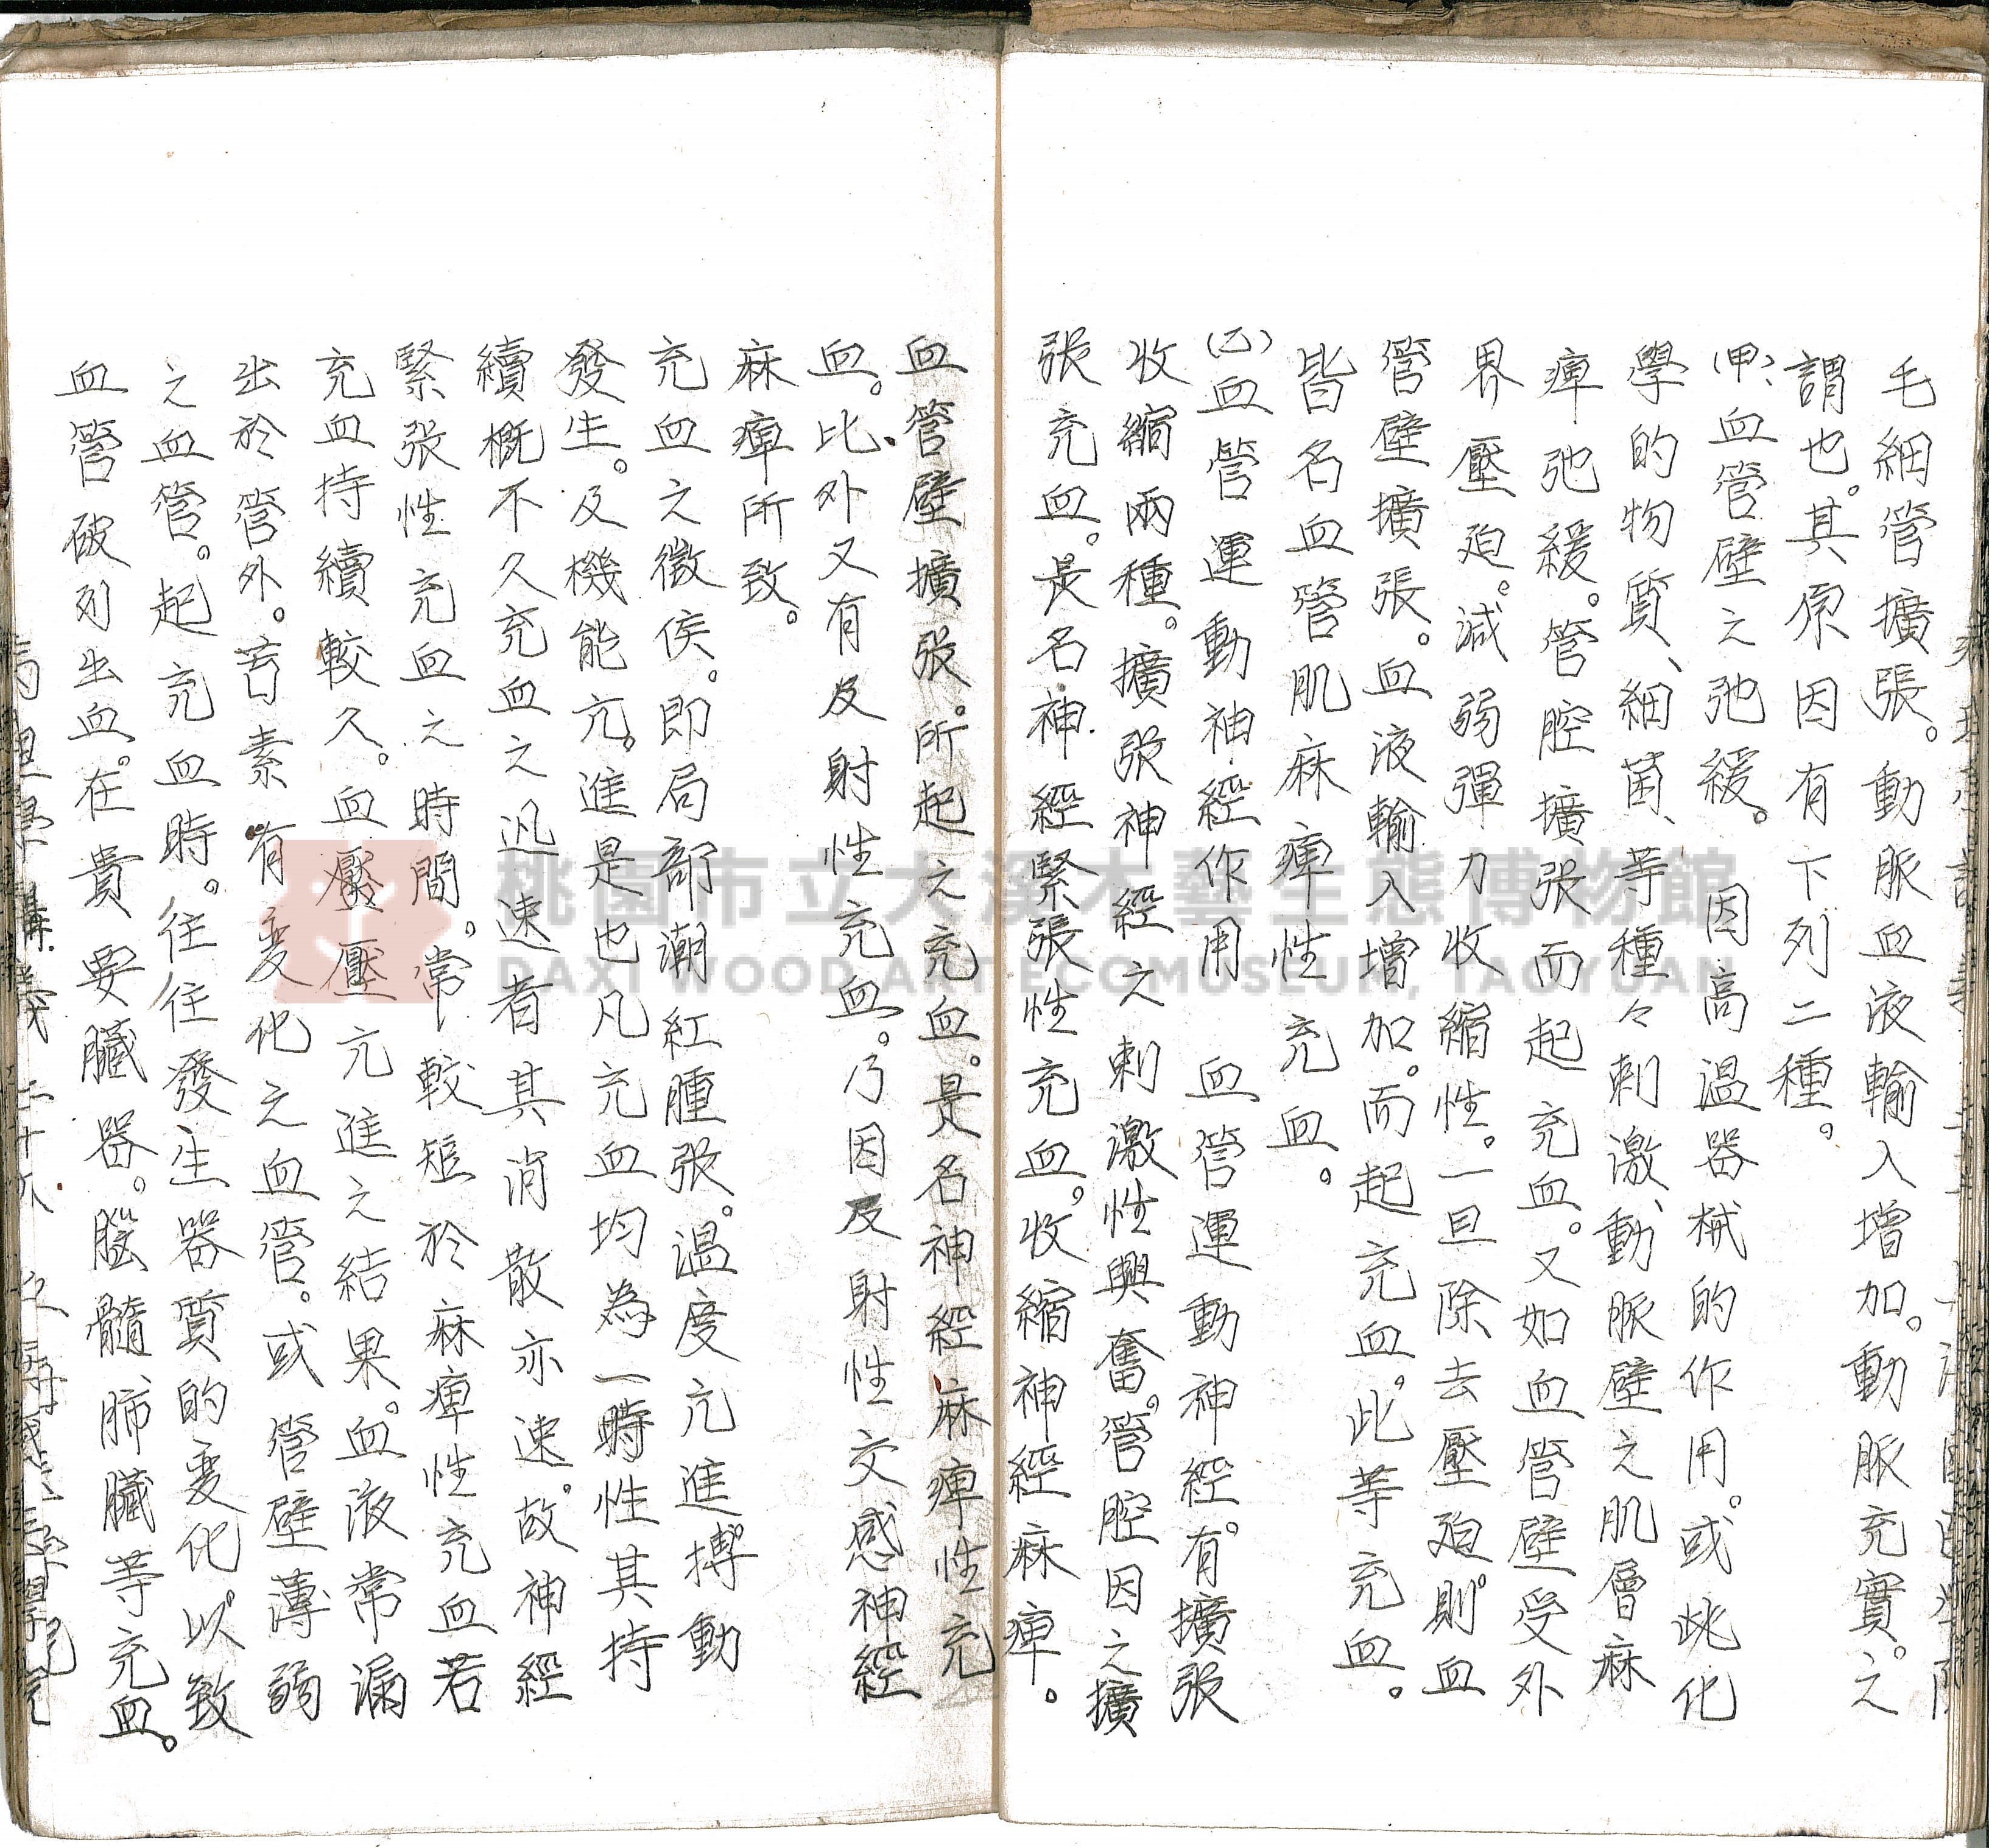 毛細管擴張。動脈血液輸入增加。動脈充實。之
謂也。其原因有下列二種。
(甲)、血管壁之弛緩。因高溫器械的作用。或此化
學的物質、細菌、等種々刺激、動脈壁之肌層麻
痺弛緩。管腔擴張而起充血。又如血管壁受外
界壓迫。減弱彈力收縮性。一旦除去壓迫。則血
管壁擴張。血液輸入增加。而起充血。此等充血。
皆名血管肌麻痺性充血。
(乙)血管運動神經作用 血管運動神經。有擴張
收縮兩種。擴張神經之刺激性興奮。管腔因之擴
張充血。是名神經緊張性充血。收縮神經麻痺。
血管壁擴張。所起之充血。是名神經麻痺性充
血。比外又有反射性充血。乃因反射性交感神經
麻痺所致。
充血之徵侯。即局部潮紅腫張。溫度亢進。搏動
發生。及機能亢。進是也凡充血均為一時性其持
續概不久充血之迅速者其消散亦速。故神經
緊張性充血之時間。常較短於麻痺性充血若
充血持續較久。血壓壓亢進之結果。血液常漏
出於管外。若素有变化之血管。或管壁薄弱
之血管。起充血時。往往發生器質的变化。以致
血管破列出血。在貴要臟器。腦髓、肺臟等充血。
桃園市立大溪木藝生態博物館
DAXI WOOD ART ECOMUSEUM, TAOYUAN